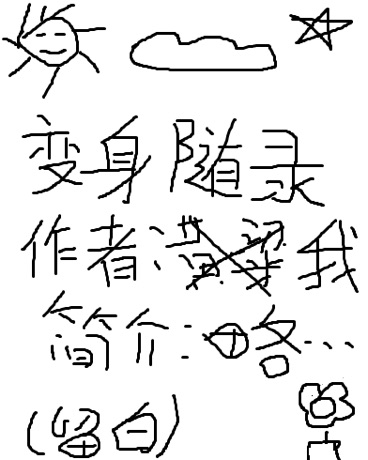 变身随录
作者:我
简介:略...
(留白)